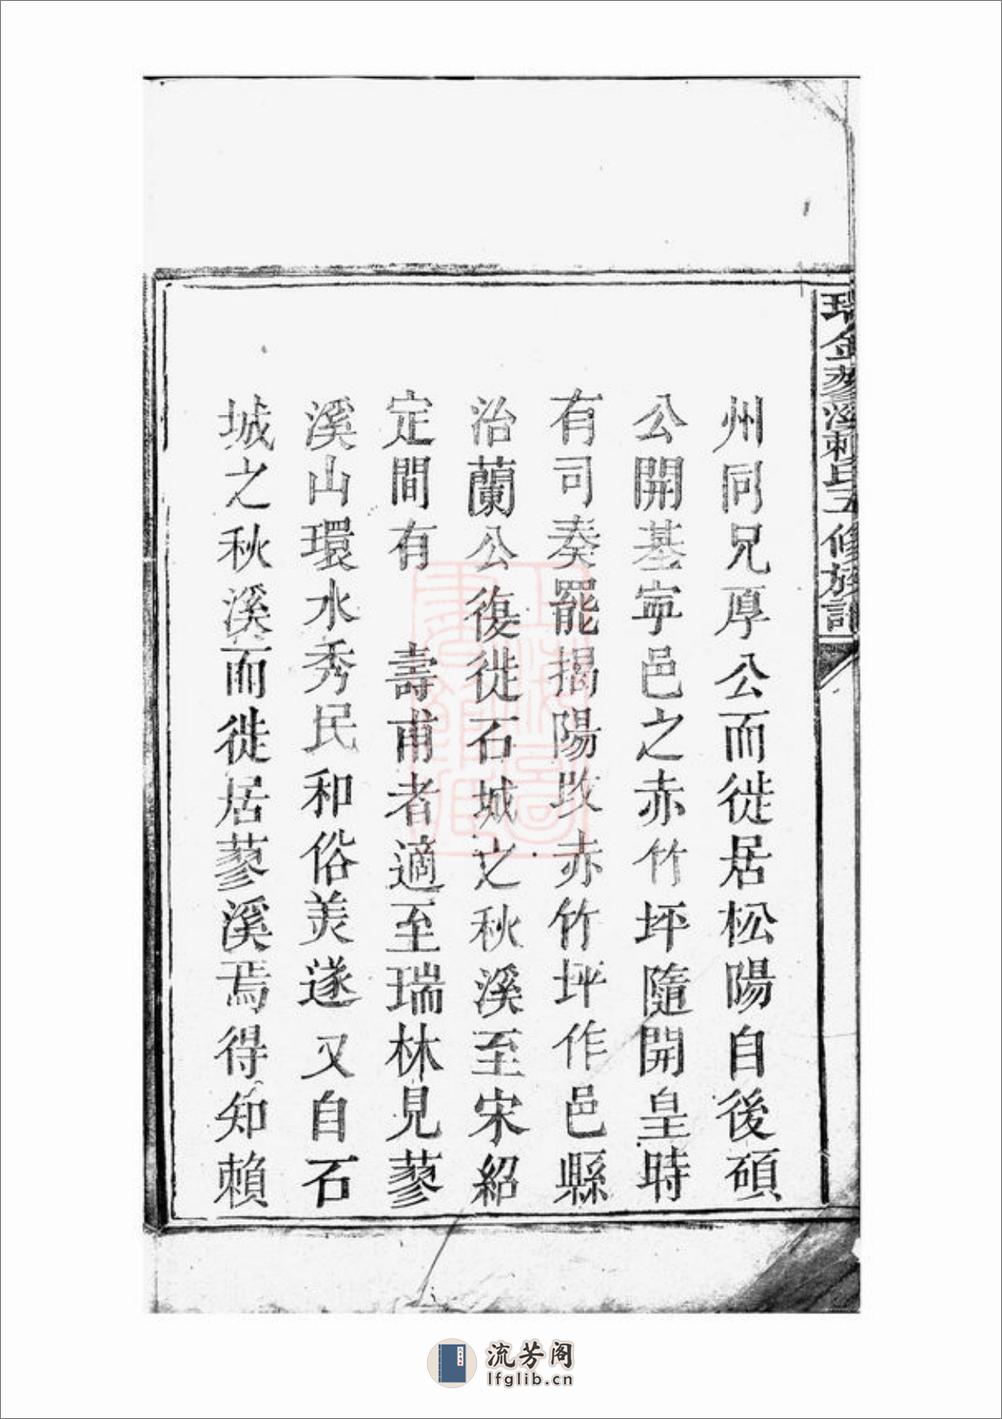 瑞金蓼溪賴氏五修族譜
州同兄厚公而徙居松陽自後碩
公開基寧邑之赤竹坪隨開皇時
有司奏罷揭陽改赤竹坪作邑縣
治蘭公復徙石城之秋溪至宋紹
定間有 壽甫者適至瑞林見蓼
溪山環水秀民和俗美遂又自石
城之秋溪而徙居蓼溪焉得知賴
流芳阁
lfglib.cn